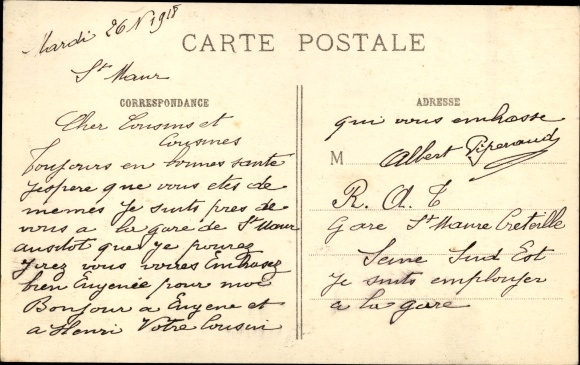 Mardi 26 N 1918
CARTE POSTALE
St Maur
CORRESPONDANCE
Cher Cousins et
Cousines
Toujours en bonnes sante
Jespere que vous etes de
memes Je suits pres de
vous a la gare de St Maur
ausitot que je pourez
Jirez vous voires Embrasez
bien Eugenée pour moi
Bonjour a Eugene et
a Henri Votre Cousin
ADRESSE
qui vous embrasse
M Albert
R. A. T
Gare St Maure Creteille
Seine Sud Est
Je suits employer
a la gare